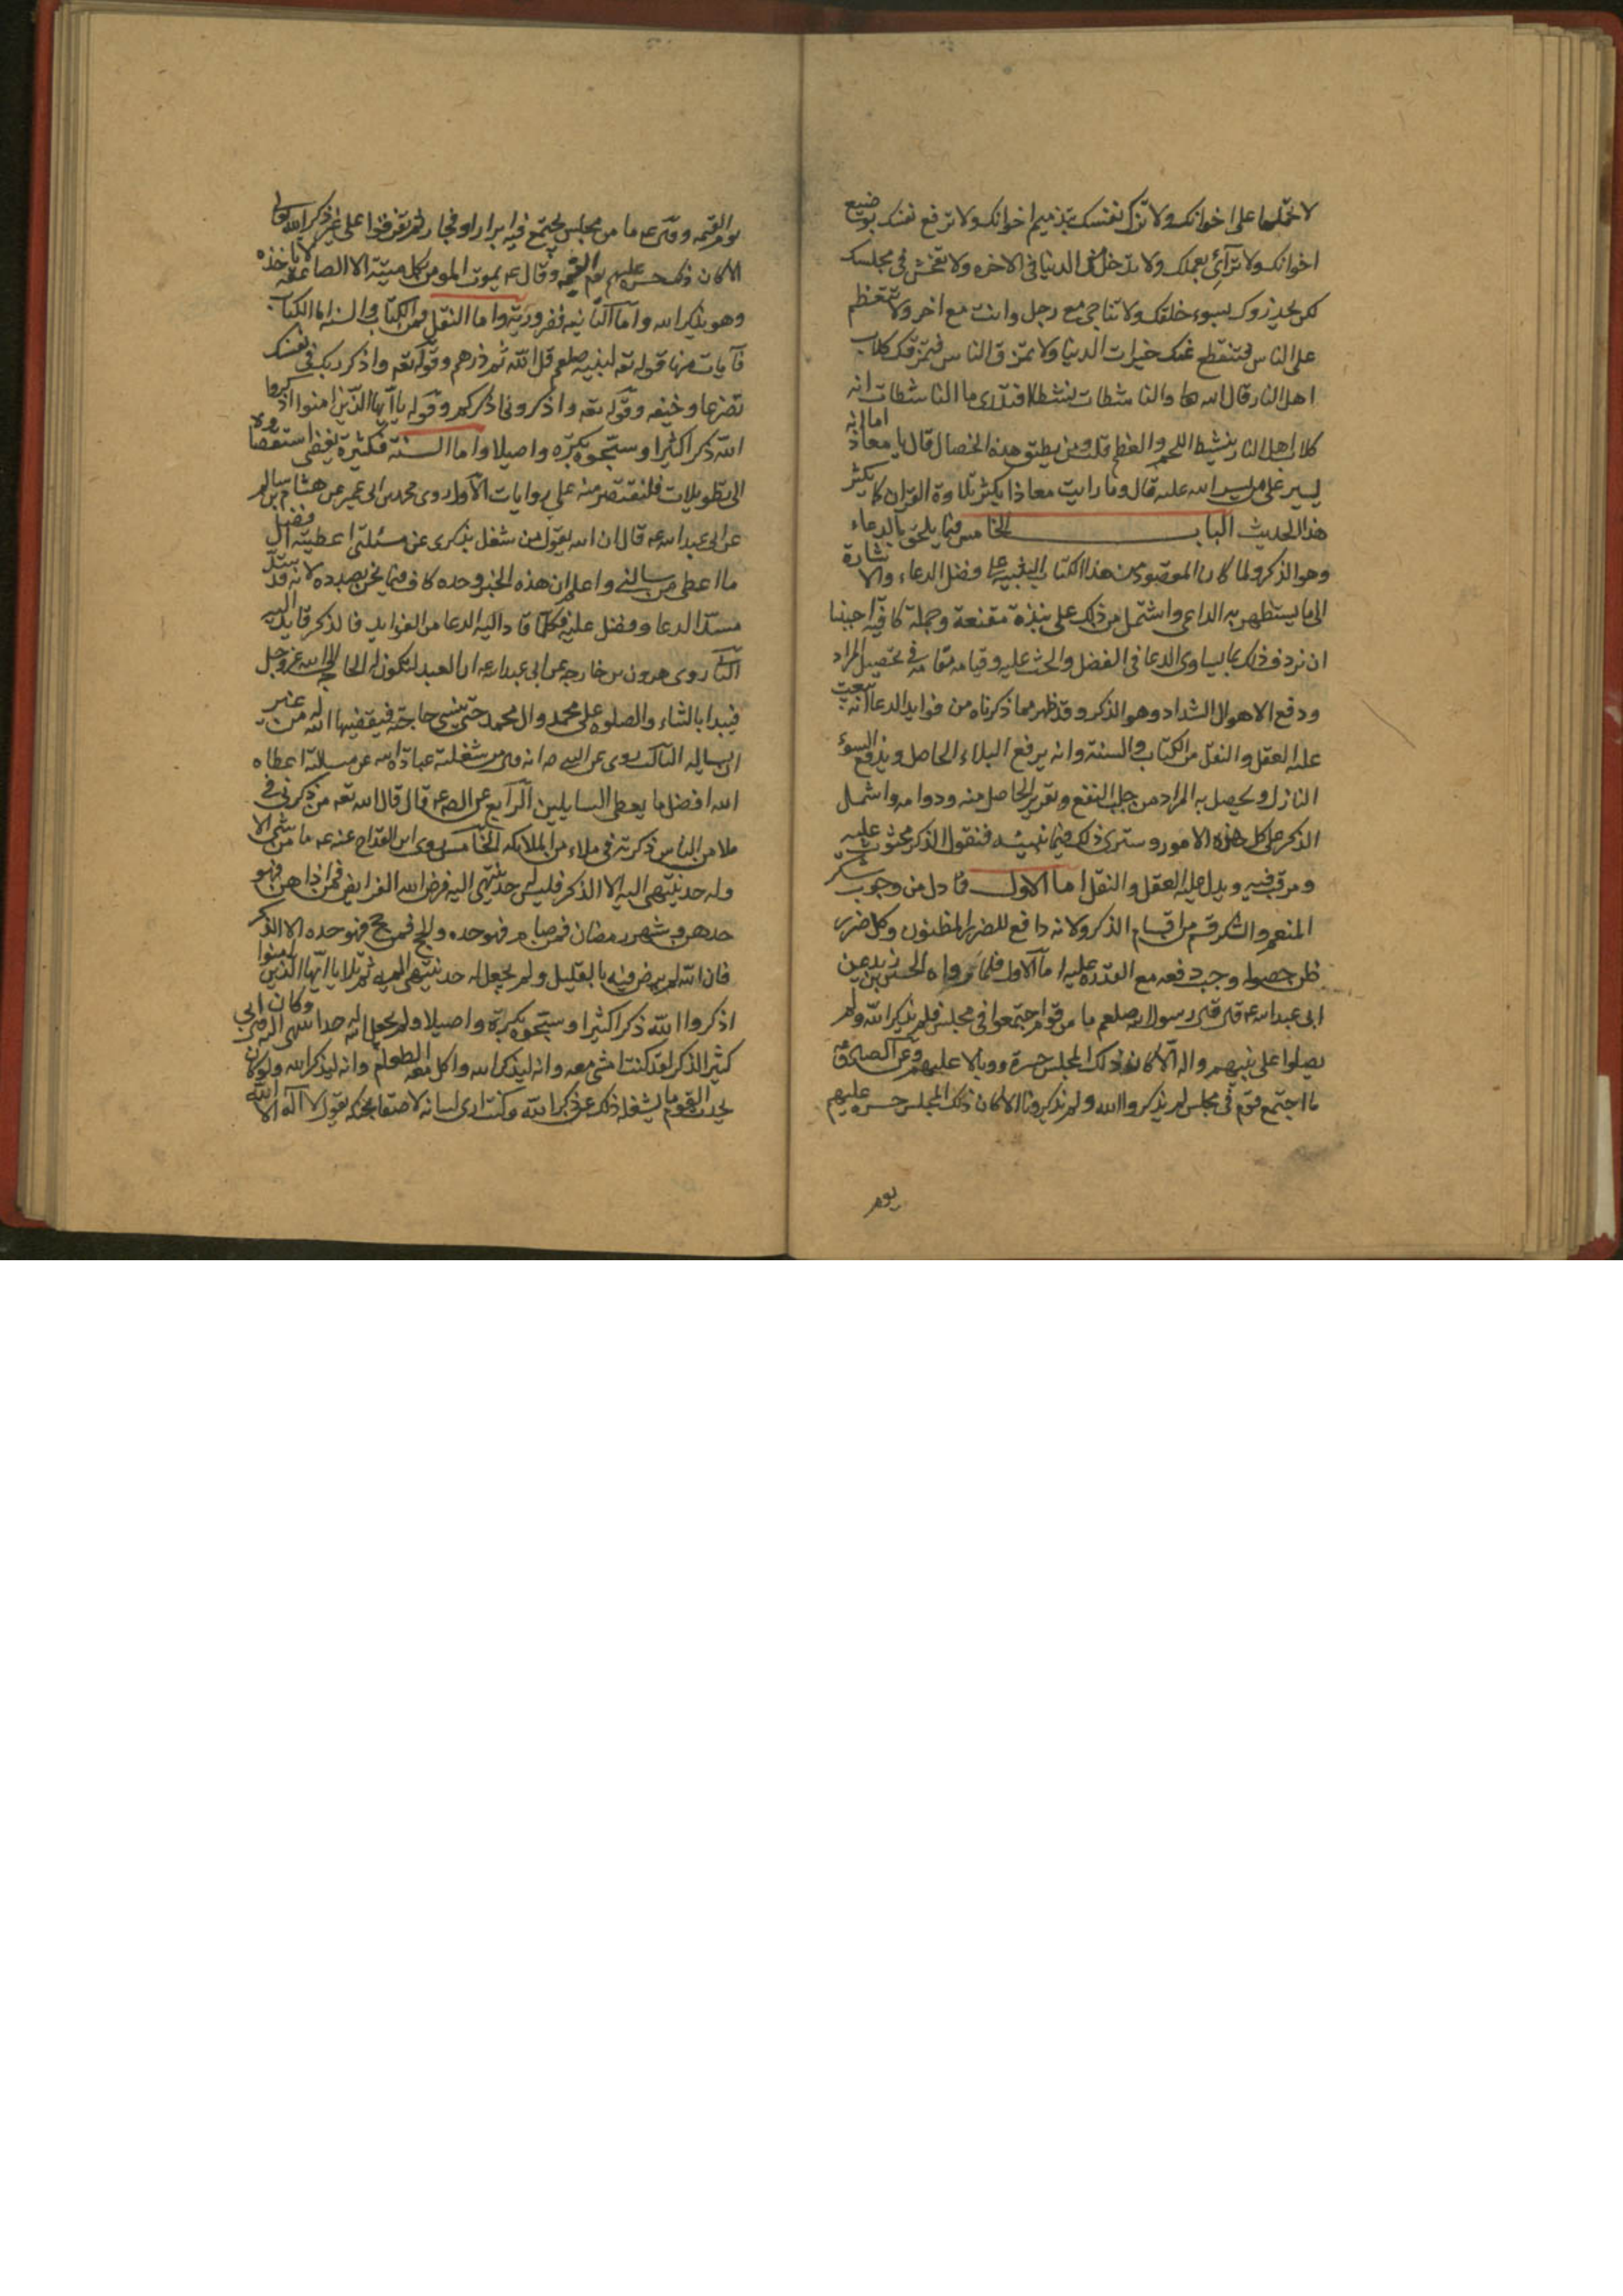 لا تحملها على اخوانك ولا تزك نفسك بتذميم اخوانك ولا ترفع نفسك بوضع
اخوانك ولا ترآئ بعملك ولا تدخل من الدنيا في الاخره ولا تفحش في مجلسك
لكى يحذروك لسوء خلقك ولا تناجى مع رجل وانت مع اخر ولا تتعظم
على الناس فتنقطع عنك خيرات الدنيا ولا تمزق الناس فتمزقك كلاب
اهل النار قال الله تعا والناشطات نشطا افتدرى ما الناشطات انه
كلاب اهل النار ينشط اللحم والعظم قلت ومن يطيق هذه الخصال قال يا معاذ اما انه
يسير على من يسر الله عليه قال وما رايت معاذا يكثر تلاوة القران كما يكثر
هذا الحديث الباب الخامس فيما يلحق بالدعاء
وهو الذكر ولما كان المقصود من هذا الكتاب التنبيه على فضل الدعاء والاشارة
الى ما يستظهر به الداعى واشتمل من ذلك على نبذة مقنعة وجملة كافية احببنا
ان نردف ذلك بما يساوى الدعا في الفضل والحث عليه وقيامه مقامه في تحصيل المراد
ودفع الاهوال الشداد وهو الذكر وقد ظهر مما ذكرناه من فوايد الدعا انه يبعث
عليه العقل والنقل من الكتاب والسنة وانه يرفع البلاء الحاصل ويدفع السوء
النازل ويحصل به المراد من جلب النفع وتقرير الحاصل منه ودوامه واشتمل
الذكر على كل هذه الامور وسترى ذلك فيما نبينه فنقول الذكر محثوث عليه
ومرغب فيه ويدل عليه العقل والنقل اما الاول فما دل من وجوب شكر
المنعم والشكر قسم من اقسام الذكر ولانه دافع للضرر المظنون وكل ضرر
ظن حصوله وجب دفعه مع القدرة عليه اما الاول فلما رواه الحسين بن زيد عن
ابى عبد الله عه قال قال رسول الله صلعم ما من قوم اجتمعوا في مجلس فلم يذكروا الله ولم
يصلوا على نبيهم واله الا كان ذلك المجلس حسرة ووبالا عليهم وعن الصادق
ما اجتمع قوم في مجلس لم يذكروا الله ولم يذكرونا الا كان ذلك المجلس حسره عليهم
يوم
يوم القيمه وقال عه ما من مجلس يجتمع فيه ابرار او فجار ثم تفرقوا على غير ذكر الله تعالى
الا كان ذلك حسرة عليهم يوم القيمه وقال عه يموت المومن بكل ميتة الا الصاعقه لا تاخذه
وهو يذكر الله واما الثانيه فضروريه واما النقل فمن الكتاب والسنة اما الكتاب
فآيات منها قوله تعه لنبيه صلعم قل الله ثم ذرهم وقوله تعه واذكر ربك في نفسك
تضرعا وخيفه وقوله تعه واذكرونى اذكركم وقوله يا ايها الذين امنوا اذكروا
الله ذكرا كثيرا وسبحوه بكرة واصيلا واما السنة فكثيرة يفضى استقصاوها
الى تطويلات فلنقتصر منه على روايات الاول روى محمد بن ابى عمير عن هشام بن سالم
عن ابى عبد الله عه قال ان الله يقول من شغل بذكرى عن مسئلتى اعطيته افضل
ما اعطى من سالنى واعلم ان هذه الخبر وحده كاف فيما نحن بصدده لانه قد سد
مسد الدعا وفضل عليه فكلما قاد اليه الدعا من الفوايد فالذكر قايد اليه
الثانى روى هرون بن خارجه عن ابى عبد الله عه ان العبد لتكون له الحاجه الى الله عز وجل
فيبدا بالثناء والصلوة على محمد وال محمد حتى ينسى حاجته فيقضيها الله له من غير
ان يساله الثالث روى عن النبى صه انه قال من شغلته عبادة الله عن مسالته اعطاه
الله افضل ما يعطى السايلين الرابع عن الصه عه قال قال الله تعه من ذكرنى في
ملا من الناس ذكرته في ملاء من الملائكه الخامس روى ابن القداح عنه عه ما من شى الا
وله حد ينتهى اليه الا الذكر فليس له حد ينتهى اليه فرض الله الفرايض فمن اداهن فهو
حدهن وشهر رمضان فمن صامه فهو حده والحج فمن حج فهو حده الا الذكر
فان الله لم يرض منه بالقليل ولم يجعل له حد ينتهى اليه ثم تلا يا ايها الذين امنوا
اذكروا الله ذكرا كثيرا وسبحوه بكرة واصيلا ولم يجعل له حدا ينتهى اليه قال وكان ابى
كثير الذكر لقد كنت امشى معه وانه ليذكر الله واكل معه الطعام وانه ليذكر الله ولو كان
يحدث القوم ما يشغله ذلك عن ذكر الله وكنت ارى لسانه لاصقا بحنكه يقول لا اله الا الله